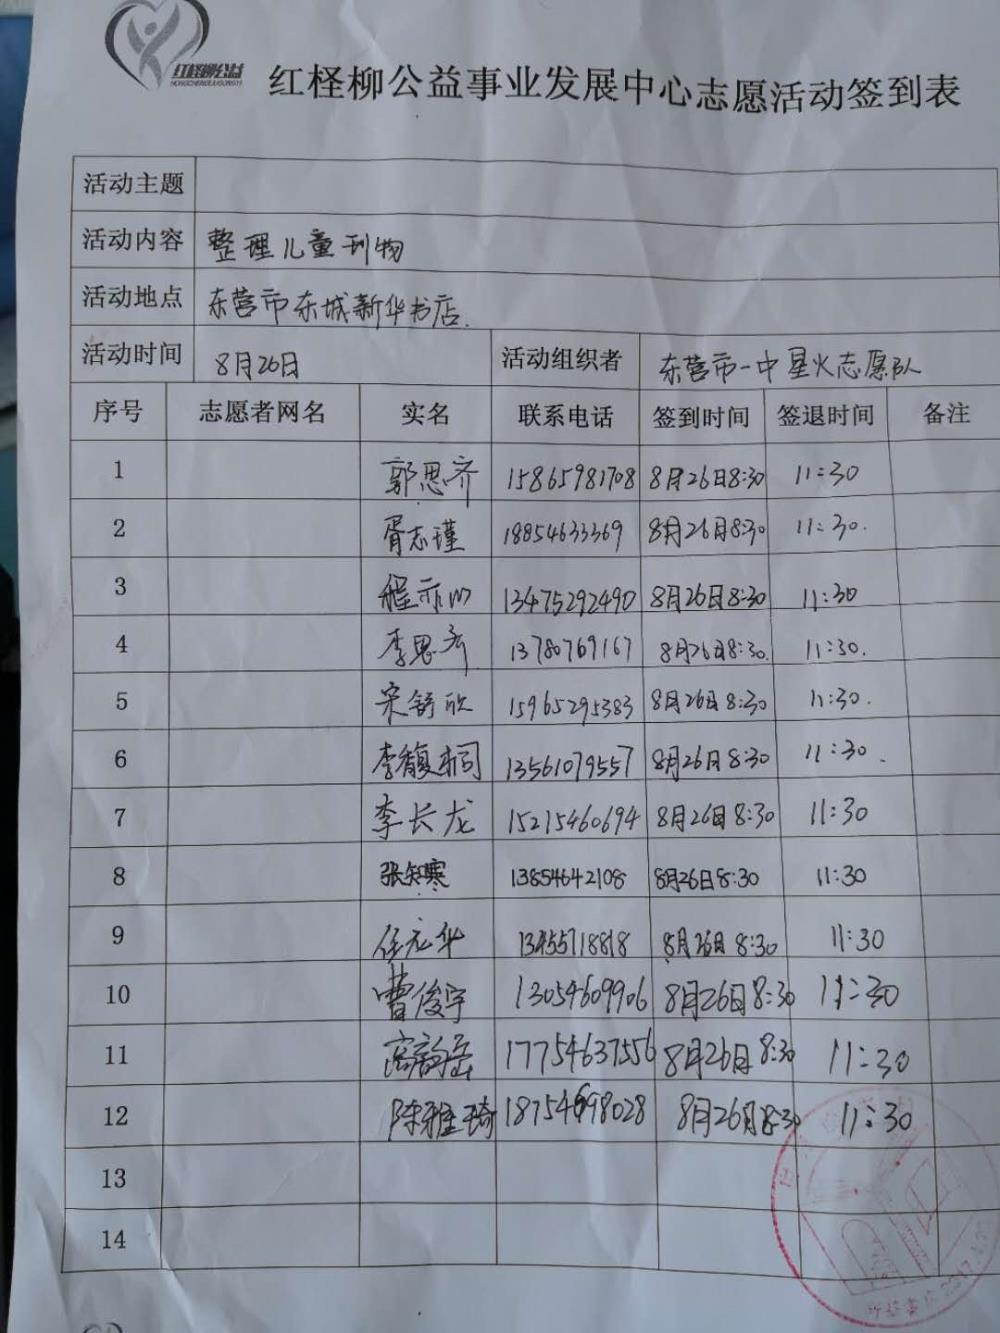 红柽柳公益
HONGCHENGLIUGONGYI
红柽柳公益事业发展中心志愿活动签到表
活动主题
活动内容 整理儿童刊物
活动地点 东营市东城新华书店.
活动时间 8月26日 活动组织者 东营市一中星火志愿队
序号 志愿者网名 实名 联系电话 签到时间 签退时间 备注
1 郭思齐 15865981708 8月26日8:30 11:30
2 胥志瑾 18854633369 8月26日8:30 11:30.
3 程亦 13475292490 8月26日8:30 11:30
4 李思齐 13780769167 8月26日8:30. 11:30.
5 宋舒欣 15965295383 8月26日8:30 11:30.
6 李馥桐 13561079557 8月26日8:30 11:30.
7 李长龙 15215460694 8月26日8:30 11:30
8 张知寒 13854642108 8月26日8:30 11:30
9 任元华 13455718818 8月26日8:30 11:30
10 曹俊宇 13054609906 8月26日8:30 11:30
11 17754637556 8月26日8:30 11:30
12 陈雅琦 18754698028 8月26日8:30 11:30
13
14